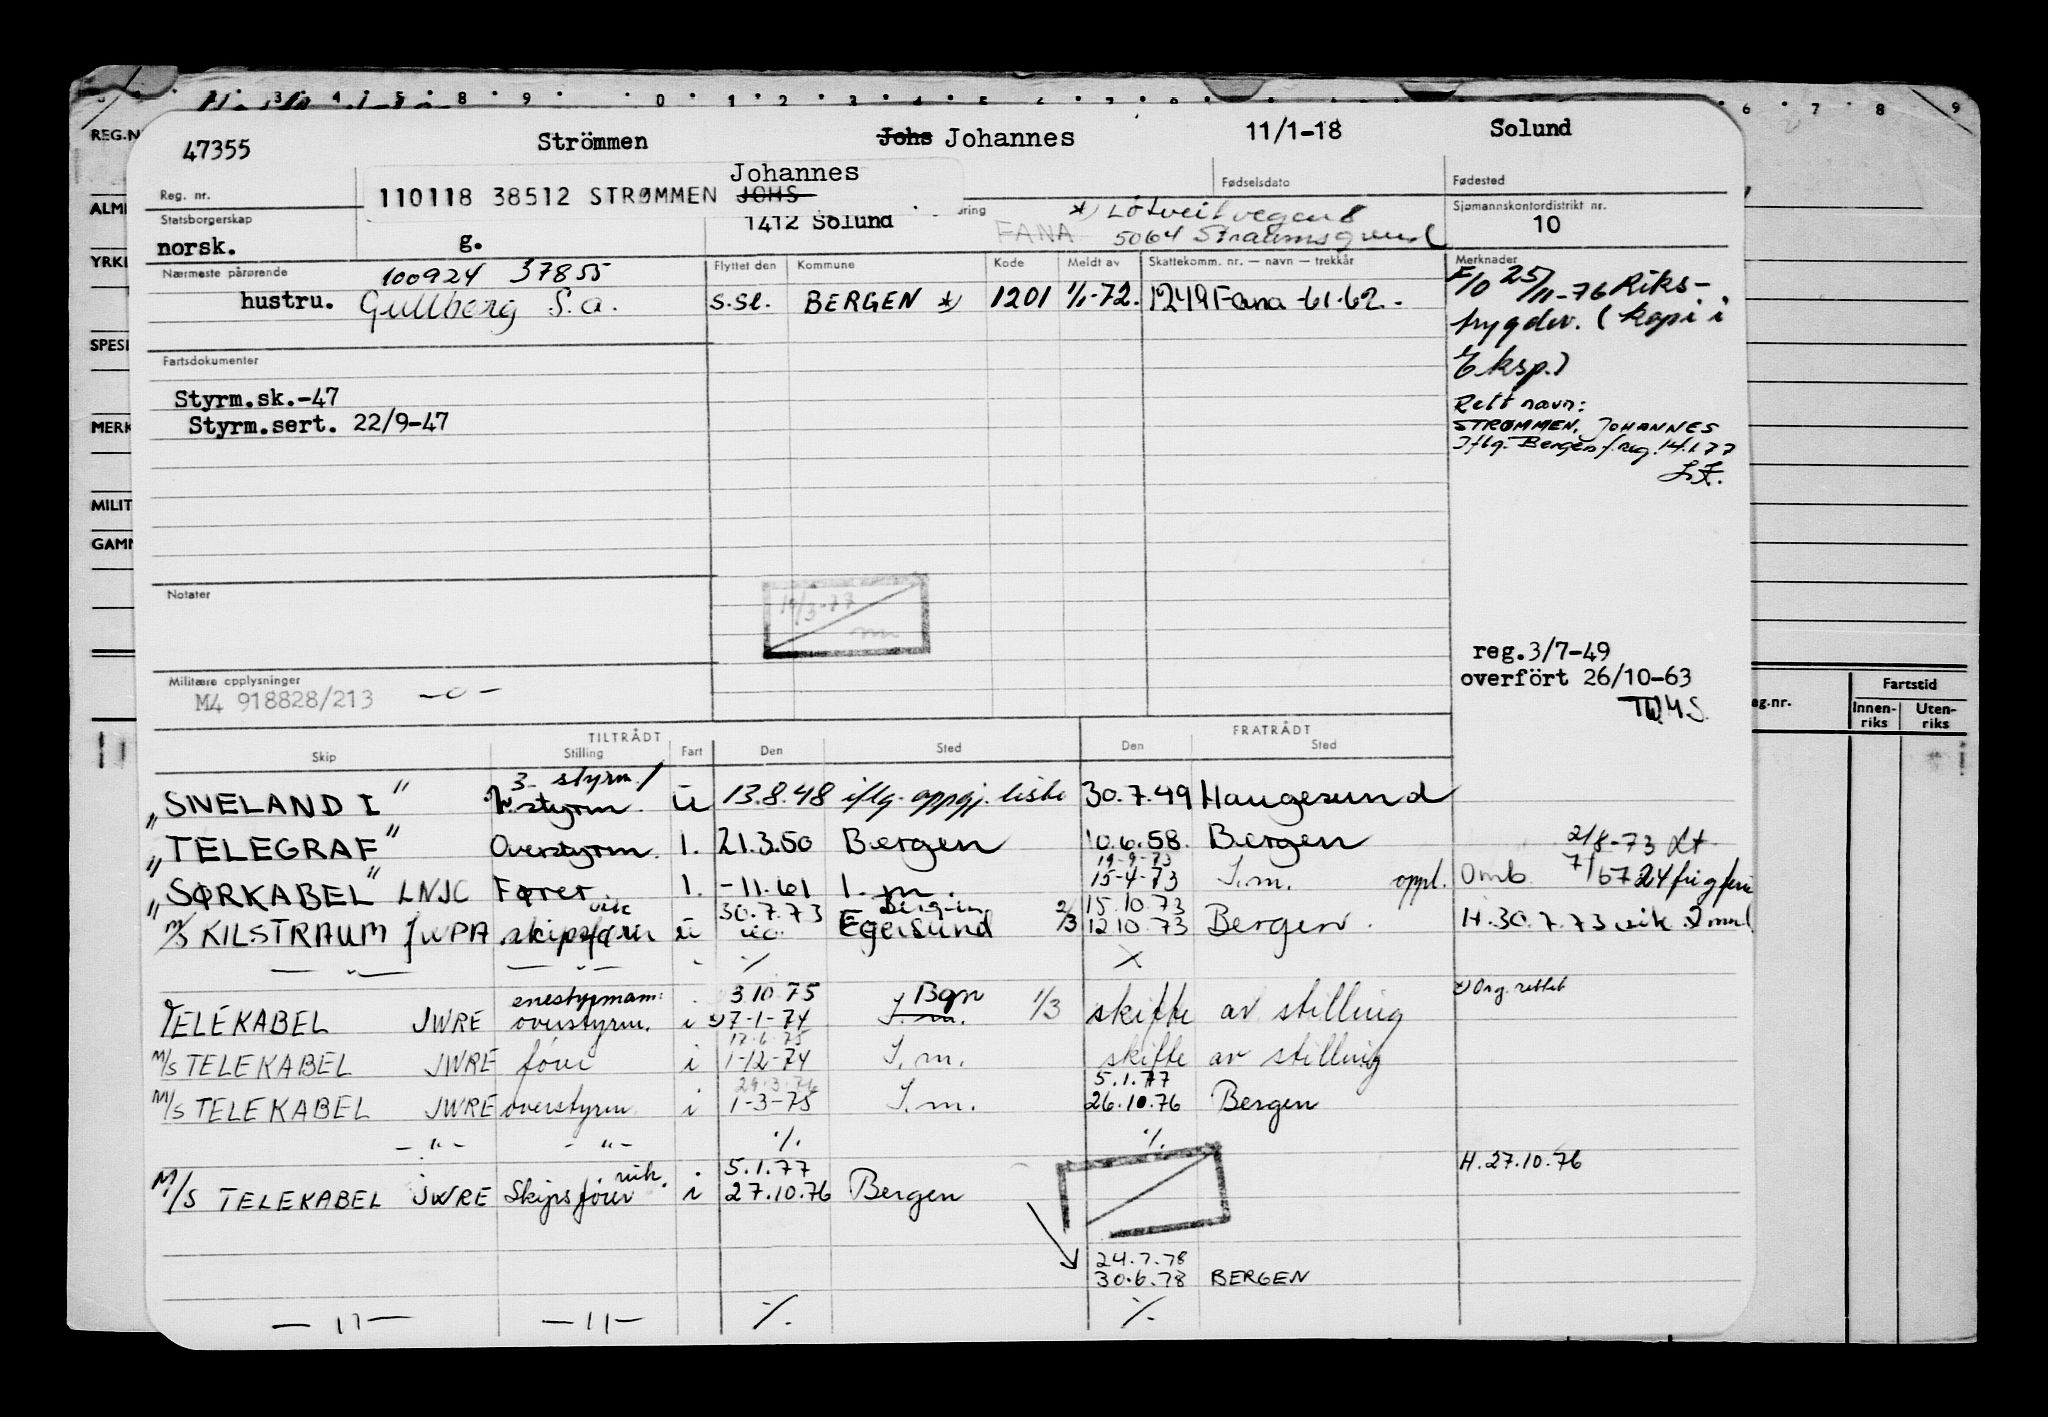 3 4 5 8 9 0 1 2 3 4 5 6 7 8 6 7 8 9
REG.N
47355 Strömmen Johs Johannes 11/1-18 Solund
Johannes
Reg. nr. 110118 38512 STRØMMEN JOHS Fødselsdato Fødested
ALM
Statsborgerskap 1412 Solund *) Løtveitvegen 8 Sjømannskontordistrikt nr.
norsk. g. FANA 5064 Straumsgrend 10
YRK
Nærmeste pårørende 100924 37855 Flyttet den Kommune Kode Meldt av Skattekomm. nr. — navn — trekkår Merknader
hustru. Gullborg S.a. s.sl. BERGEN *) 1201 1/1-72. 1249 Fana -61-62.-
F/O 25/11-76 Riks-
trygdev. (kopi i
Eksp.)
SPESI
Fartsdokumenter
Styrm.sk.-47
Styrm.sert. 22/9-47
MERK
Rett navn:
STRØMMEN, JOHANNES
Iflg. Bergen f.reg. 14.1.77
MILIT
GAMM
Notater
14/3-77
reg.3/7-49
overfört 26/10-63
Militære opplysninger
M4 918828/213 -o-
Fartstid
Innen-
riks
Uten-
riks
TILTRÅDT FRATRÅDT
Skip Stilling Fart Den Sted Den Sted
3. styrm./
"SNELAND I" styrm. u 13.8.48 iflg. oppgj. liste 30.7.49 Haugesund
"TELEGRAF" Overstyrm. 1. 21.3.50 Bergen 10.6.58. Bergen 2/8-73
19-9-73
"SØRKABEL" LNJC Fører 1. -11.61 I.m. 15-4-73 I.m. oppl. Omb.
vik 30.7.73 Bergen 15.10.73
M/S KILSTRAUM JWPA skipsfører u Egersund 2/3 12.10.73 Bergen. H.30.7.73 vik.
— " — — " — % X
enestyrmann: 3.10.75 Bgn
TELEKABEL JWRE overstyrm. i 7-1-74 I.m. 1/3 skifte av stilling x) Org. rettet
17.6.75
M/S TELEKABEL JWRE fører i 1-12-74 I.m. skifte av stilling
29.3.76 5.1.77
M/S TELEKABEL JWRE overstyrm i 1-3-75 I.m. 26.10.76 Bergen
- " - - " - % %
vik. 5.1.77 H.27.10.76
M/S TELEKABEL JWRE Skipsfører i 27.10.76 Bergen
24.7.78
30.6.78 BERGEN
— 11 — — 11 — % %